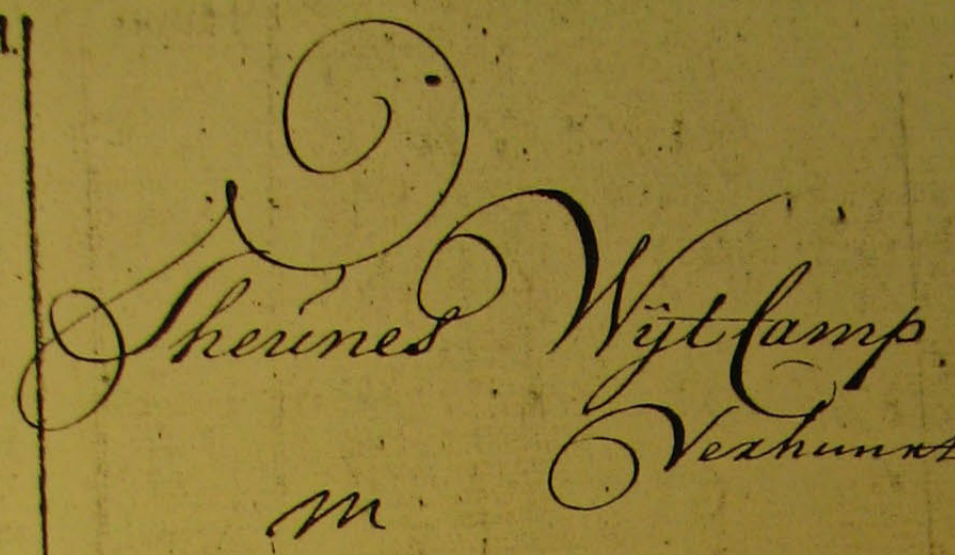 Theunes WÿtCamp
Verhuurt
m